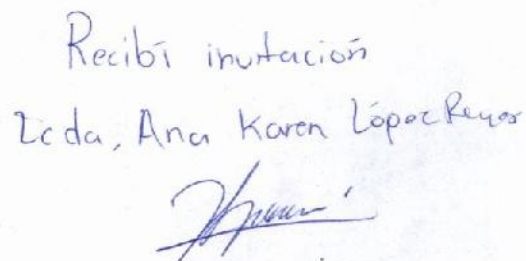 Recibí invitación
Lcda, Ana Karen López Reyes